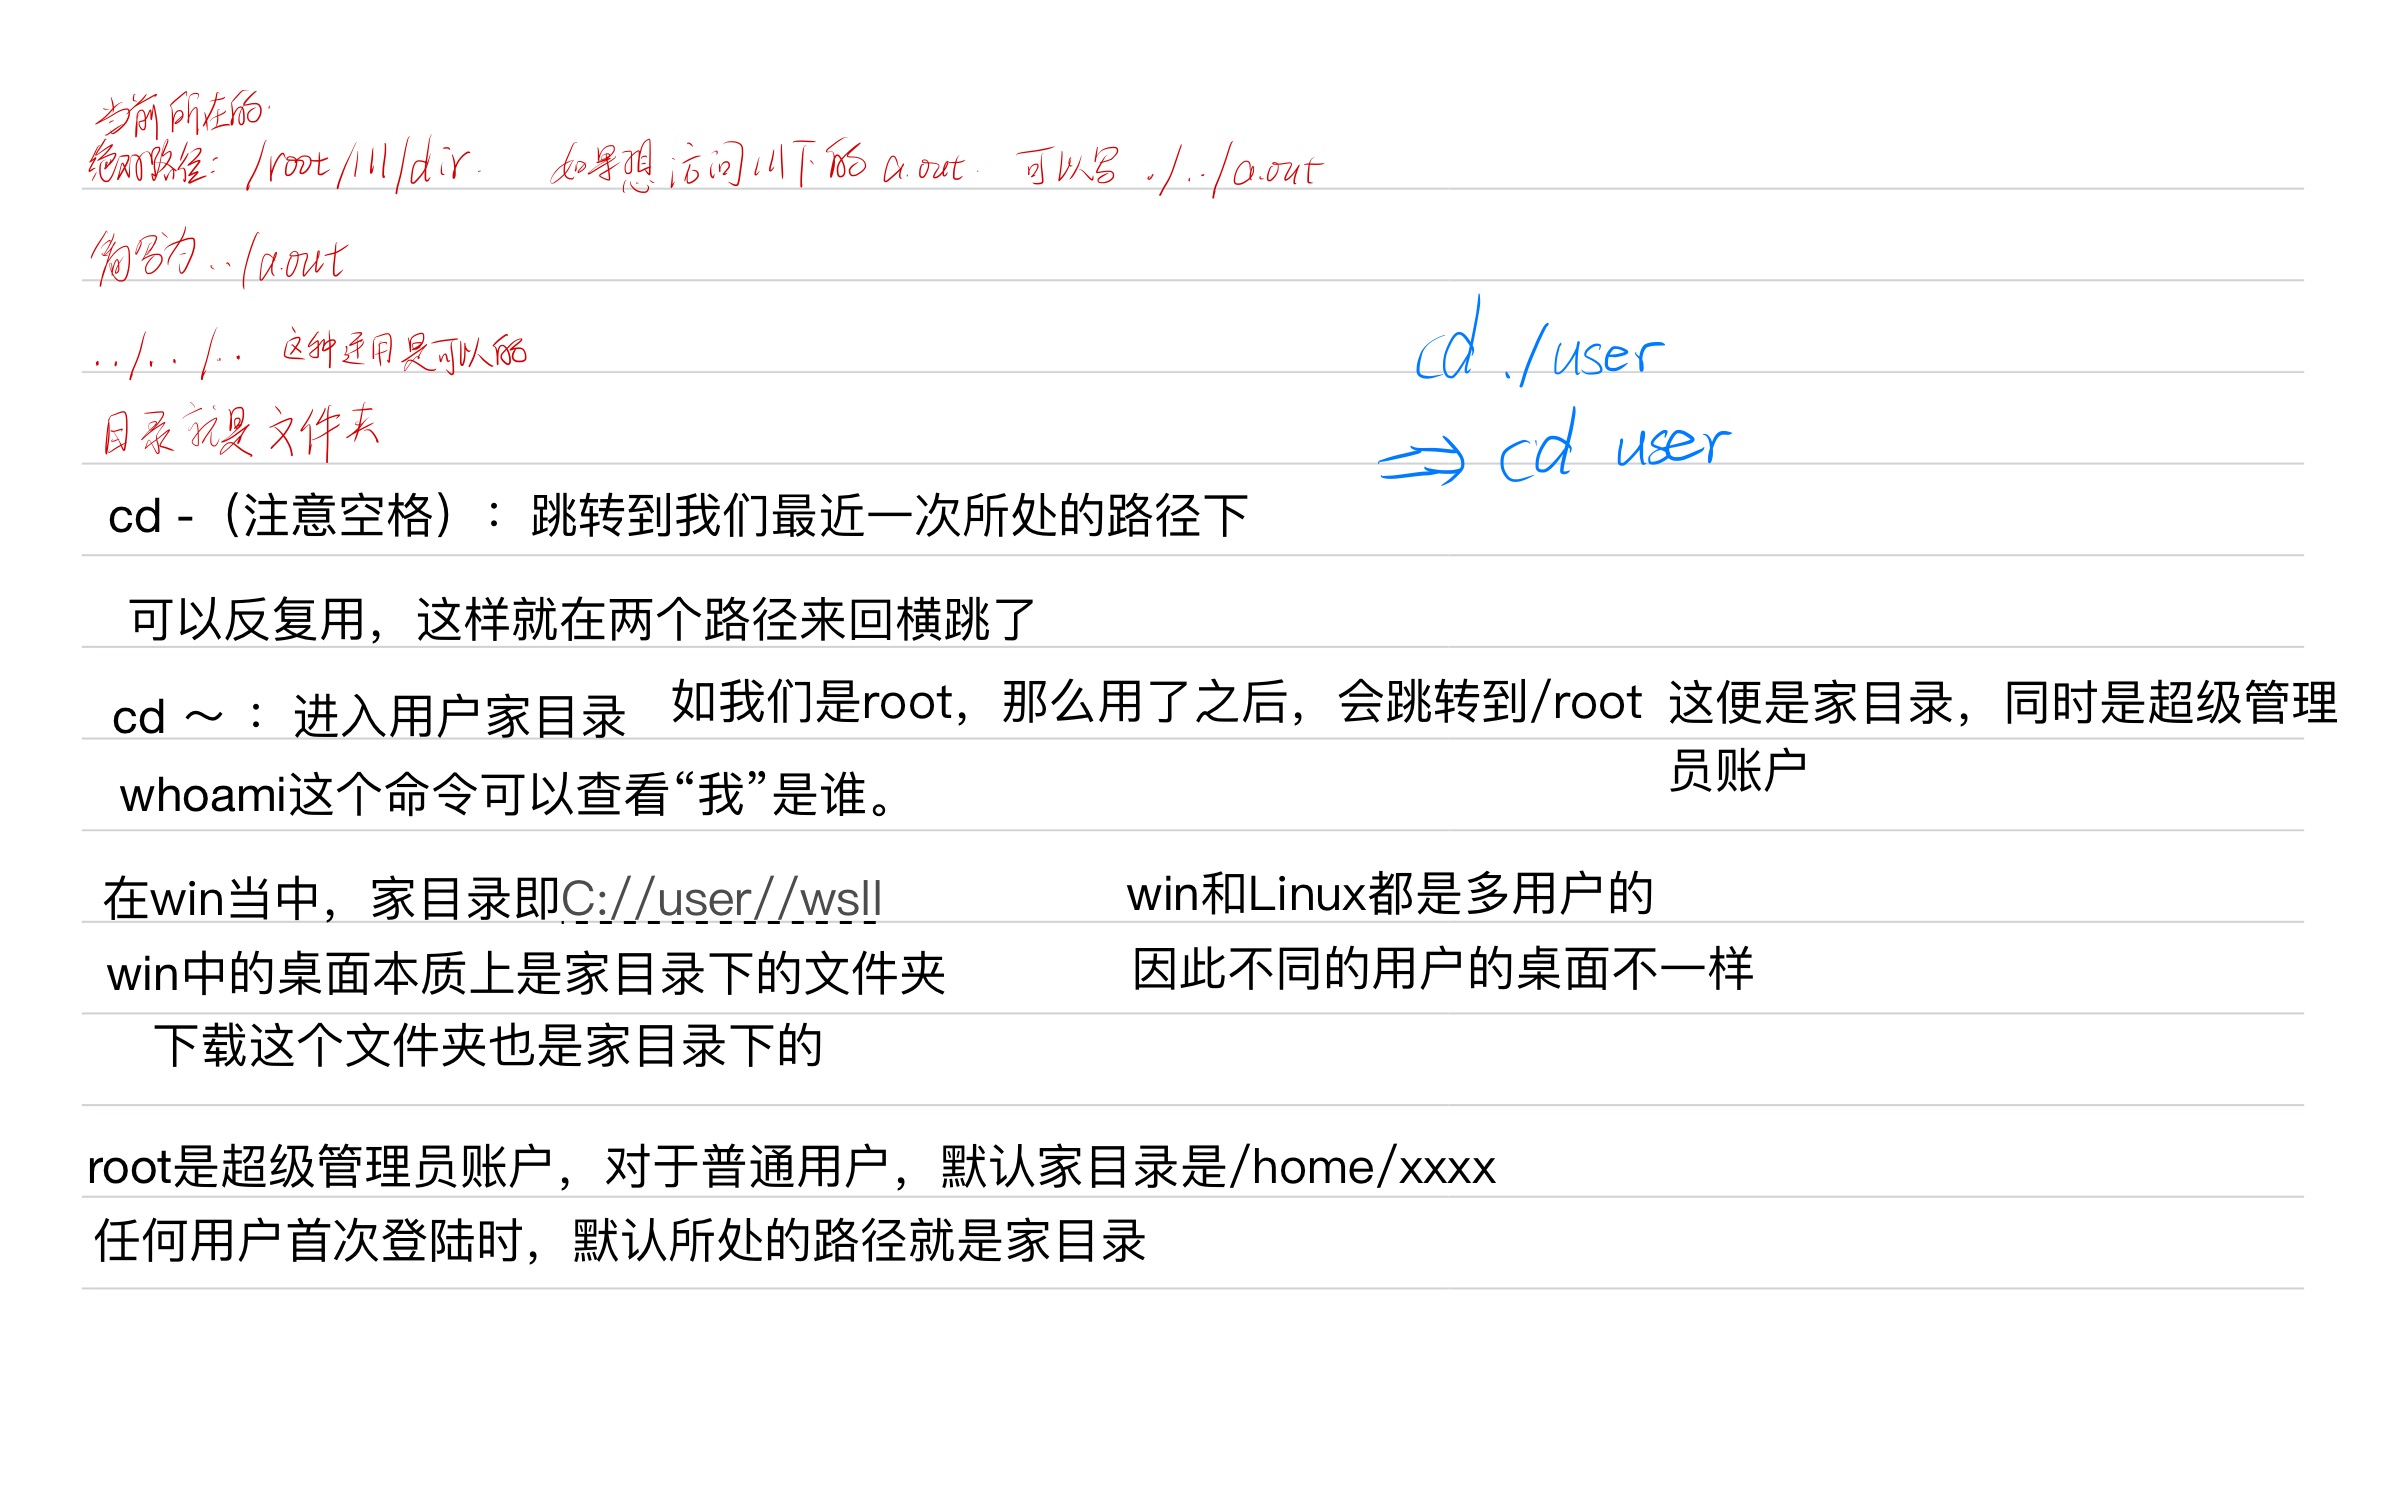 当前所在的
绝对路径：/root/111/dir. 如果想访问111下的a.out. 可以写 ./../a.out
简写为../a.out
../../.. 这种运用是可以的
cd ./user
目录就是文件夹
⇒ cd user
cd -（注意空格）：跳转到我们最近一次所处的路径下
可以反复用，这样就在两个路径来回横跳了
cd ～：进入用户家目录 如我们是root，那么用了之后，会跳转到/root 这便是家目录，同时是超级管理
员账户
whoami这个命令可以查看“我”是谁。
在win当中，家目录即C://user//wsll win和Linux都是多用户的
win中的桌面本质上是家目录下的文件夹 因此不同的用户的桌面不一样
下载这个文件夹也是家目录下的
root是超级管理员账户，对于普通用户，默认家目录是/home/xxxx
任何用户首次登陆时，默认所处的路径就是家目录